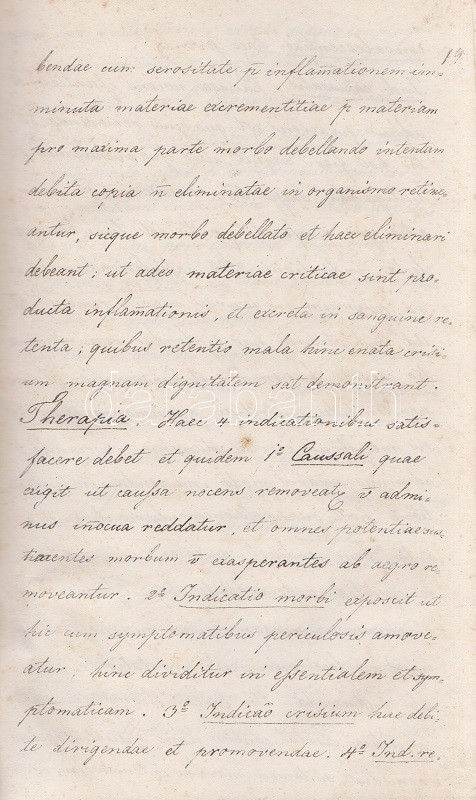 19
bendae cum serositate p̄ inflam̄ationem im-
minuta materiae excrementitiae p materiam
pro maxima parte morbo debellando intentam
debita copia n̄ eliminatae in organismo retine-
antur, sicque morbo debellato et haec eliminari
debeant; ut adeo materiae criticae sint pro-
ducta inflam̄ationis, et excreta in sanguine re-
tenta; quibus retentio mala hinc enata crisi-
um magnam dignitatem sat demonstrant.
Therapia. Haec 4 indicationibus satis-
facere debet et quidem 1º Caussali quae
exigit ut caussa nocens removeatr v̄ admi-
nus in̄ocua reddatur, et omnes potentiae sus-
morbum v̄ exasperantes ab aegro re-
moveantur. 2º Indicatio morbi exposcit ut
hic cum symptomatibus periculosis amove-
atur, hinc dividitur in essentialem et sym-
ptomaticam. 3º Indicāo crisium hae debi-
te dirigendae et promovendae. 4º Ind. re-
darabanth